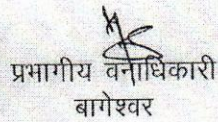 प्रभागीय वनाधिकारी
बागेश्वर